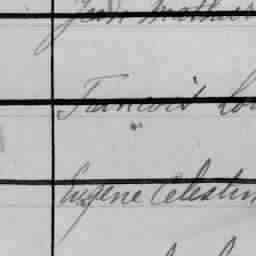 Jean Mathieu
Francois Lou
Eugene Celestin